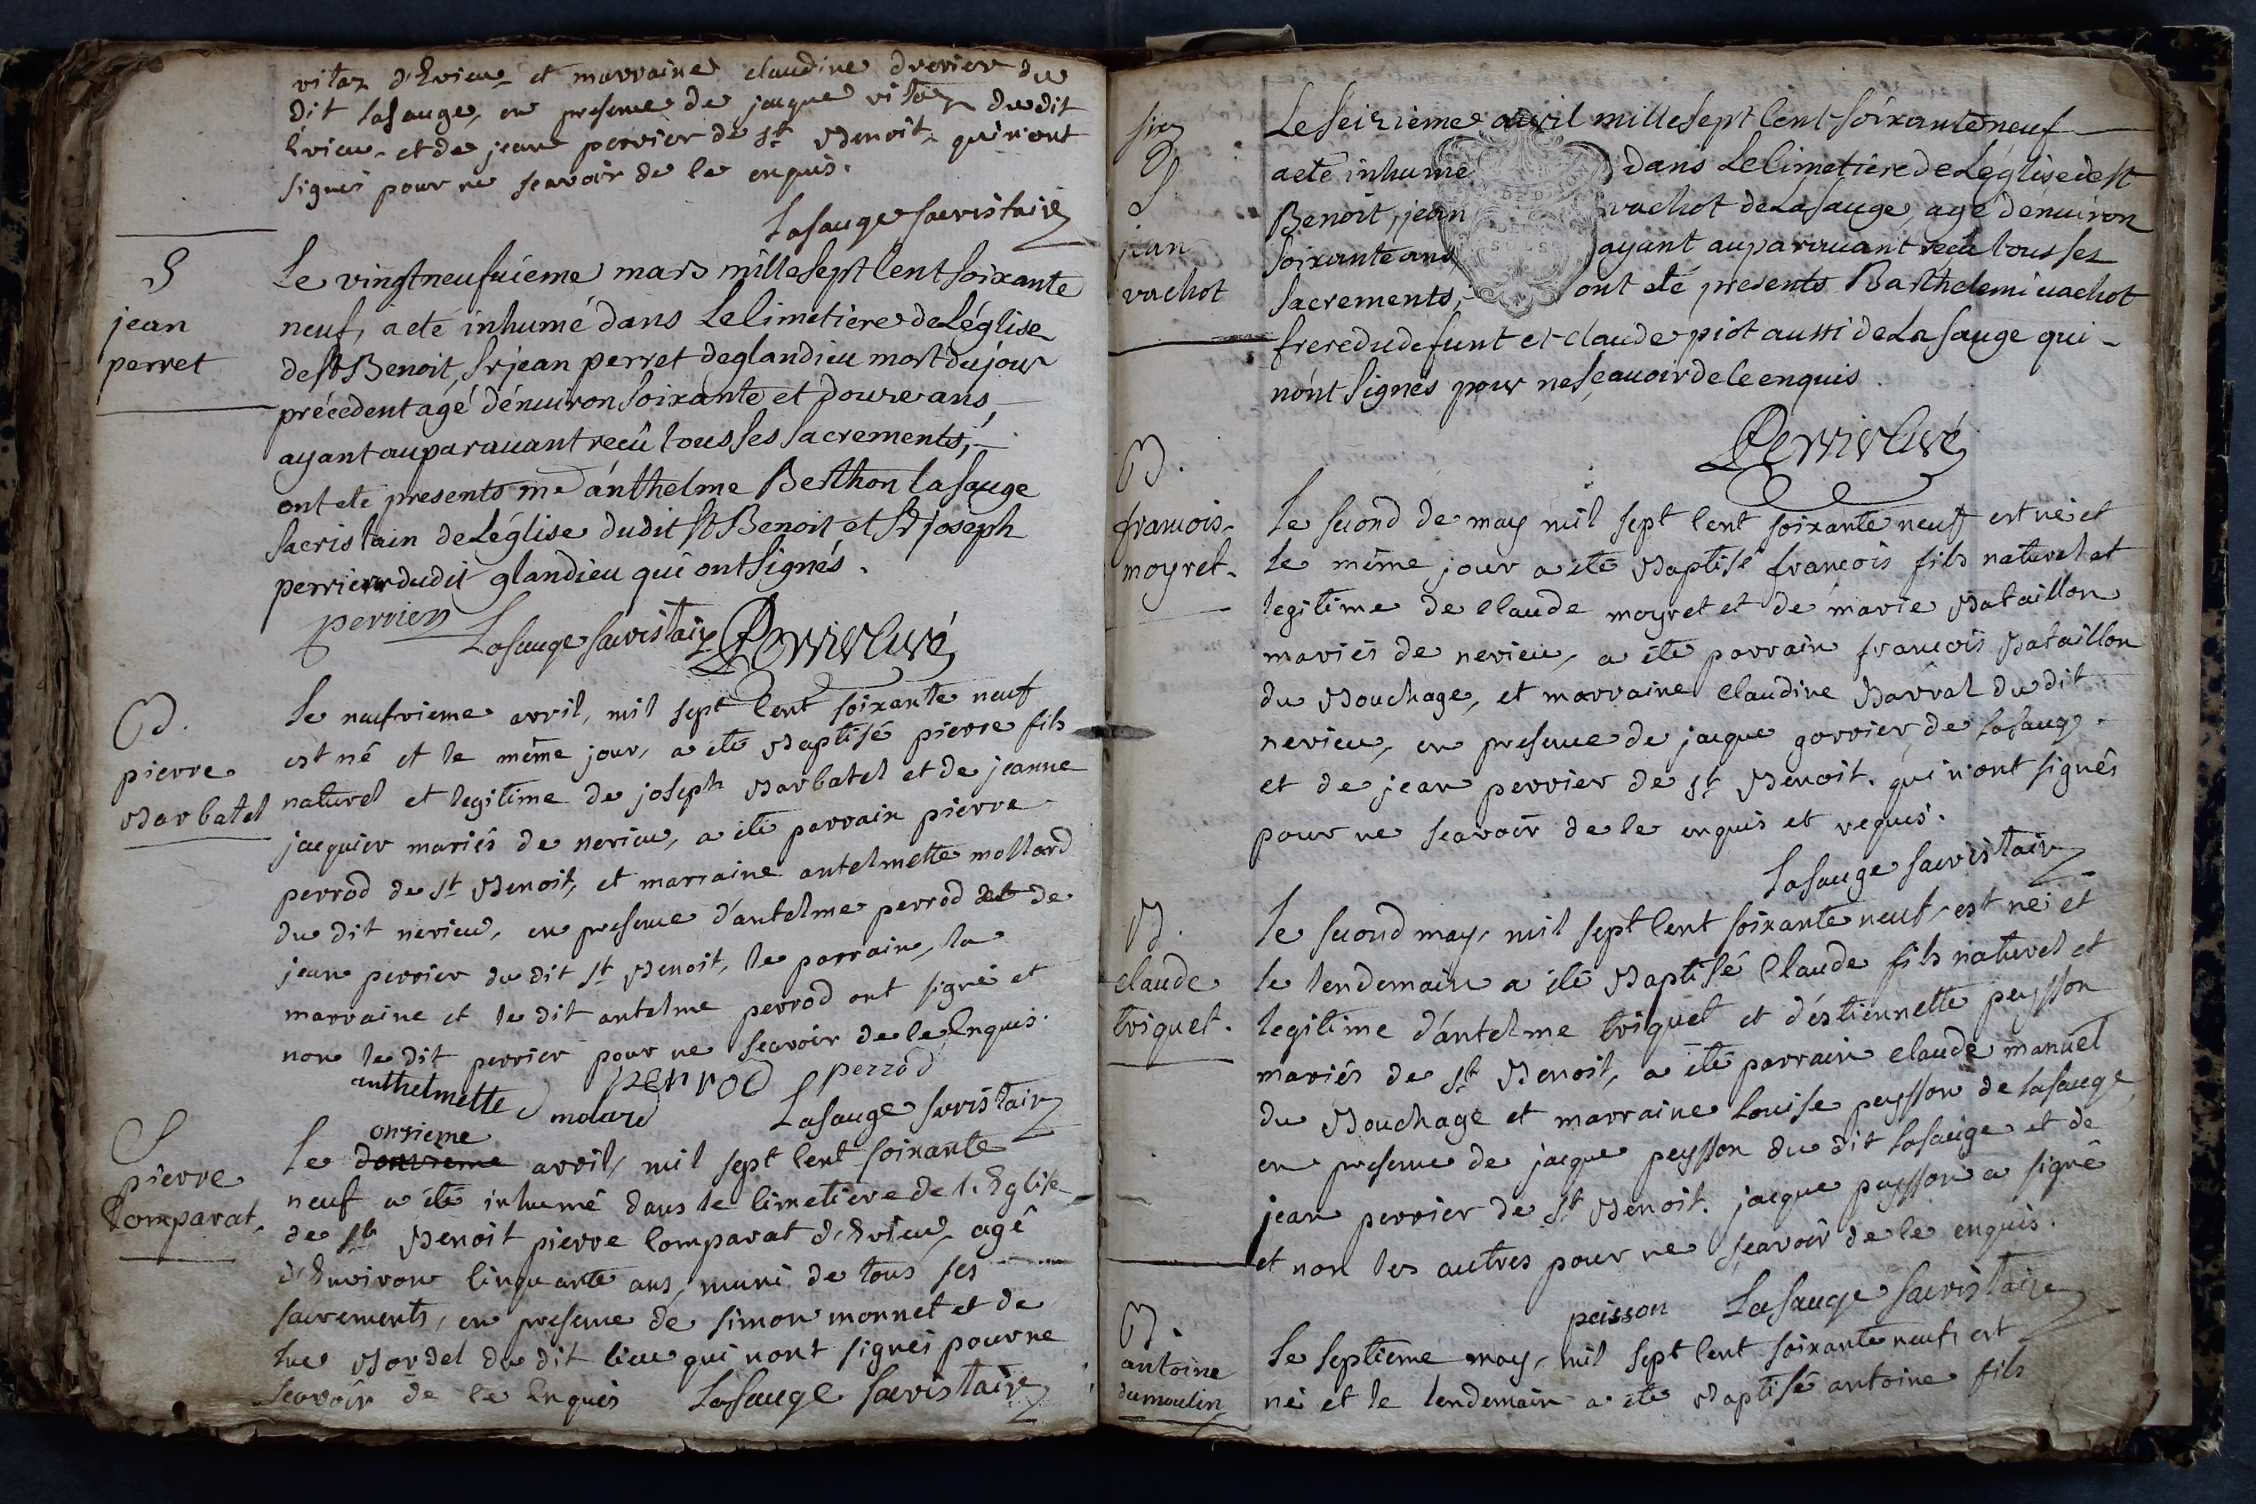 vitoz d'Evieu et marraine claudine drevier du
dit lasauge, en presence de jacque vitoz du dit
Evieu et de jean perrier de st Benoit qui n'ont
signés pour ne scavoir de le enquis.
Lasauge sacristain
S
jean
perret
Le vingtneufuieme mars mille sept Cent soixante
neuf, a eté inhumé dans Le Cimetiere de Léglise
de st Benoit, Sr jean perret deglandieu mort du jour
précedent agé dénuiron soixante et douze ans,
ayant auparauant recû tous ses sacrements,
ont eté presents me ánthelme Berthon lasauge
sacristain de Léglise dudit st Benoit et Sr joseph
perrier dudit glandieu qui ont signés.
perrier Lasauge sacristain Perrier Curé
B.
pierre
Barbatel
Le neufvieme avril, mil sept Cent soixante neuf
est né et le même jour, a été Baptisé pierre fils
naturel et legitime de joseph Barbatel et de jeanne
jacquier mariés de nerieu, a été parrain pierre
perrod de st Benoit, et marraine antelmette mollard
du dit nerieu, en presence d'antelme perrod et de
jean perrier du dit st Benoit, le parrain, la
marraine et le dit antelme perrod ont signé et
non le dit perrier pour ne scavoir de le Enquis.
anthelmette molard perrod perrod
Lasauge sacristain
S
pierre
Comparat.
onzieme
Le douzieme avril, mil sept Cent soixante
neuf a été inhumé dans le Cimetiere de l'Eglise
de st Benoit pierre Comparat d'Evieu, agé
d'Environ Cinquante ans, muni de tous ses
sacrements, en presence de simon monnet et de
luc Bordel du dit lieu qui n'ont signés pour ne
scavoir de le Enquis Lasauge sacristain
six
S
jean
vachot
Le seizieme avril mille sept Cent soixante neuf
a eté inhumé dans Le Cimetiere de Léglise de st
Benoit, jean vachot de La sauge, agé denuiron
soixante ans, ayant auparauant recû tous ses
sacrements, ont eté presents Barthelemi vachot
frere du defunt et claude piot aussi de La sauge qui
nónt signés pour ne sçauoir de le enquis.
Perrier Curé
B.
francois
moyret.
Le second de may mil sept Cent soixante neuf est né et
le même jour a été Baptisé francois fils naturel et
legitime de Claude moyret et de marie Bataillon
mariés de nerieu, a été parrain francois Bataillon
du Bouchage, et marraine Claudine Barral du dit
nerieu, en presence de jacque gorrier de lasauge
et de jean perrier de st Benoit. qui n'ont signés
pour ne scavoir de le enquis et requis.
Lasauge sacristain
B.
claude
triquet.
Le second may, mil sept Cent soixante neuf, est né et
le lendemain a été Baptisé Claude fils naturel et
legitime d'antelme triquet et d'éstiennette peysson
mariés de st Benoit, a été parrain claude manuel
du Bouchage et marraine Louise peysson de lasauge,
en presence de jacque peysson du dit lasauge et de
jean perrier de st Benoit. jacque peysson a signé
et non les autres pour ne scavoir de le enquis.
peisson Lasauge sacristain
B.
antoine
dumoulin
Le septieme may, mil sept Cent soixante neuf, est
né et le lendemain a été Baptisé antoine fils